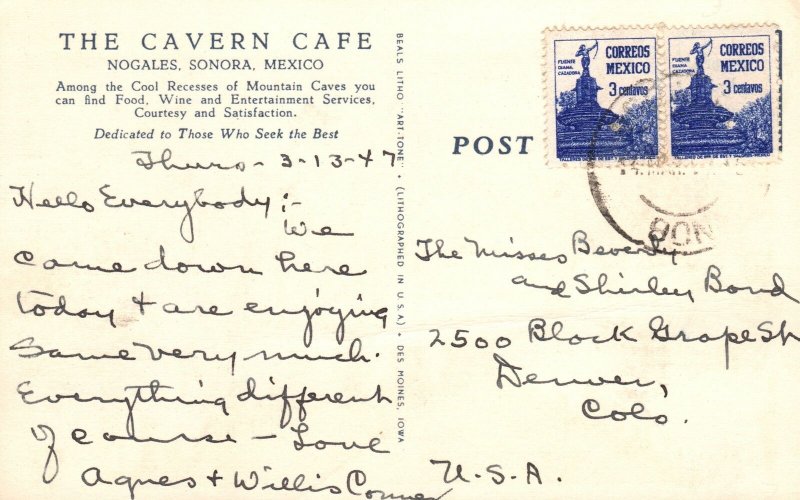 THE CAVERN CAFE
NOGALES, SONORA, MEXICO
Among the Cool Recesses of Mountain Caves you
can find Food, Wine and Entertainment Services,
Courtesy and Satisfaction.
Dedicated to Those Who Seek the Best
Thurs - 3-13-47
Hello Everybody :-
We
came down here
today + are enjoying
same very much.
Everything different
of course - Love
Agnes + Willis Conner
BEALS LITHO "ART-TONE" • (LITHOGRAPHED IN U.S.A.) • DES MOINES, IOWA
POST
FUENTE
DIANA
CAZADORA
CORREOS
MEXICO
3 centavos
FUENTE
DIANA
CAZADORA
CORREOS
MEXICO
3 centavos
SON
The Misses Beverly
and Shirley Bond
2500 Block Grape St
Denver,
Colo.
U.S.A.